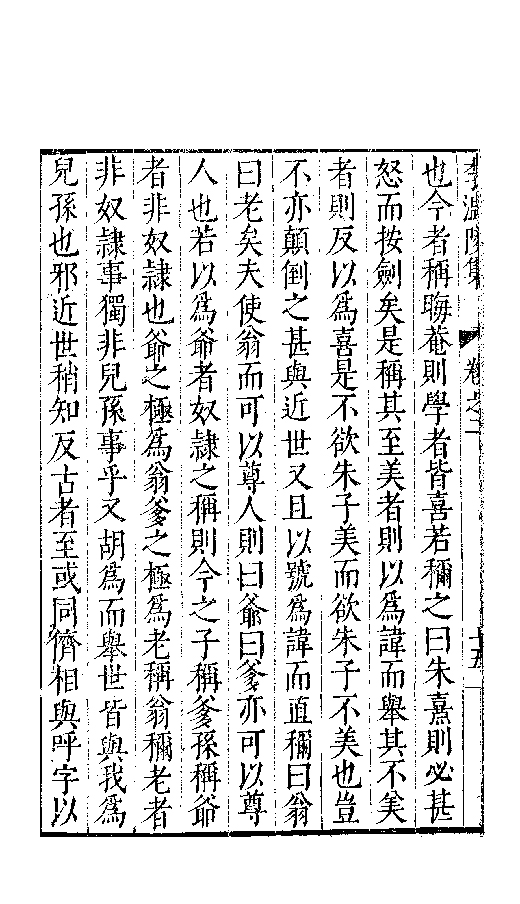 李温陵集 卷之二 十五
也今者稱晦菴則學者皆喜若稱之曰朱熹則必甚
怒而按劍矣是稱其至美者則以為諱而舉其不美
者則反以為喜是不欲朱子美而欲朱子不美也豈
不亦顛倒之甚與近世又且以號為諱而直稱曰翁
曰老矣夫使翁而可以尊人則曰爺曰爹亦可以尊
人也若以為爺者奴隷之稱則今之子稱爹孫稱爺
者非奴隷也爺之極為翁爹之極為老稱翁稱老者
非奴隷事獨非兒孫事乎又胡為而舉世皆與我為
兒孫也邪近世稍知反古者至或同儕相與呼字以